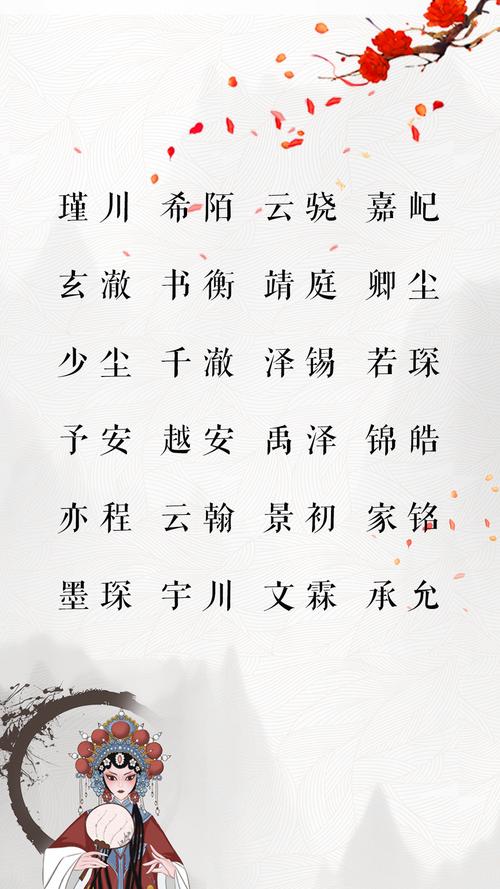 瑾川 希陌 云骁 嘉屺
玄澈 书衡 靖庭 卿尘
少尘 千澈 泽锡 若琛
予安 越安 禹泽 锦皓
亦程 云翰 景初 家铭
墨琛 宇川 文霖 承允